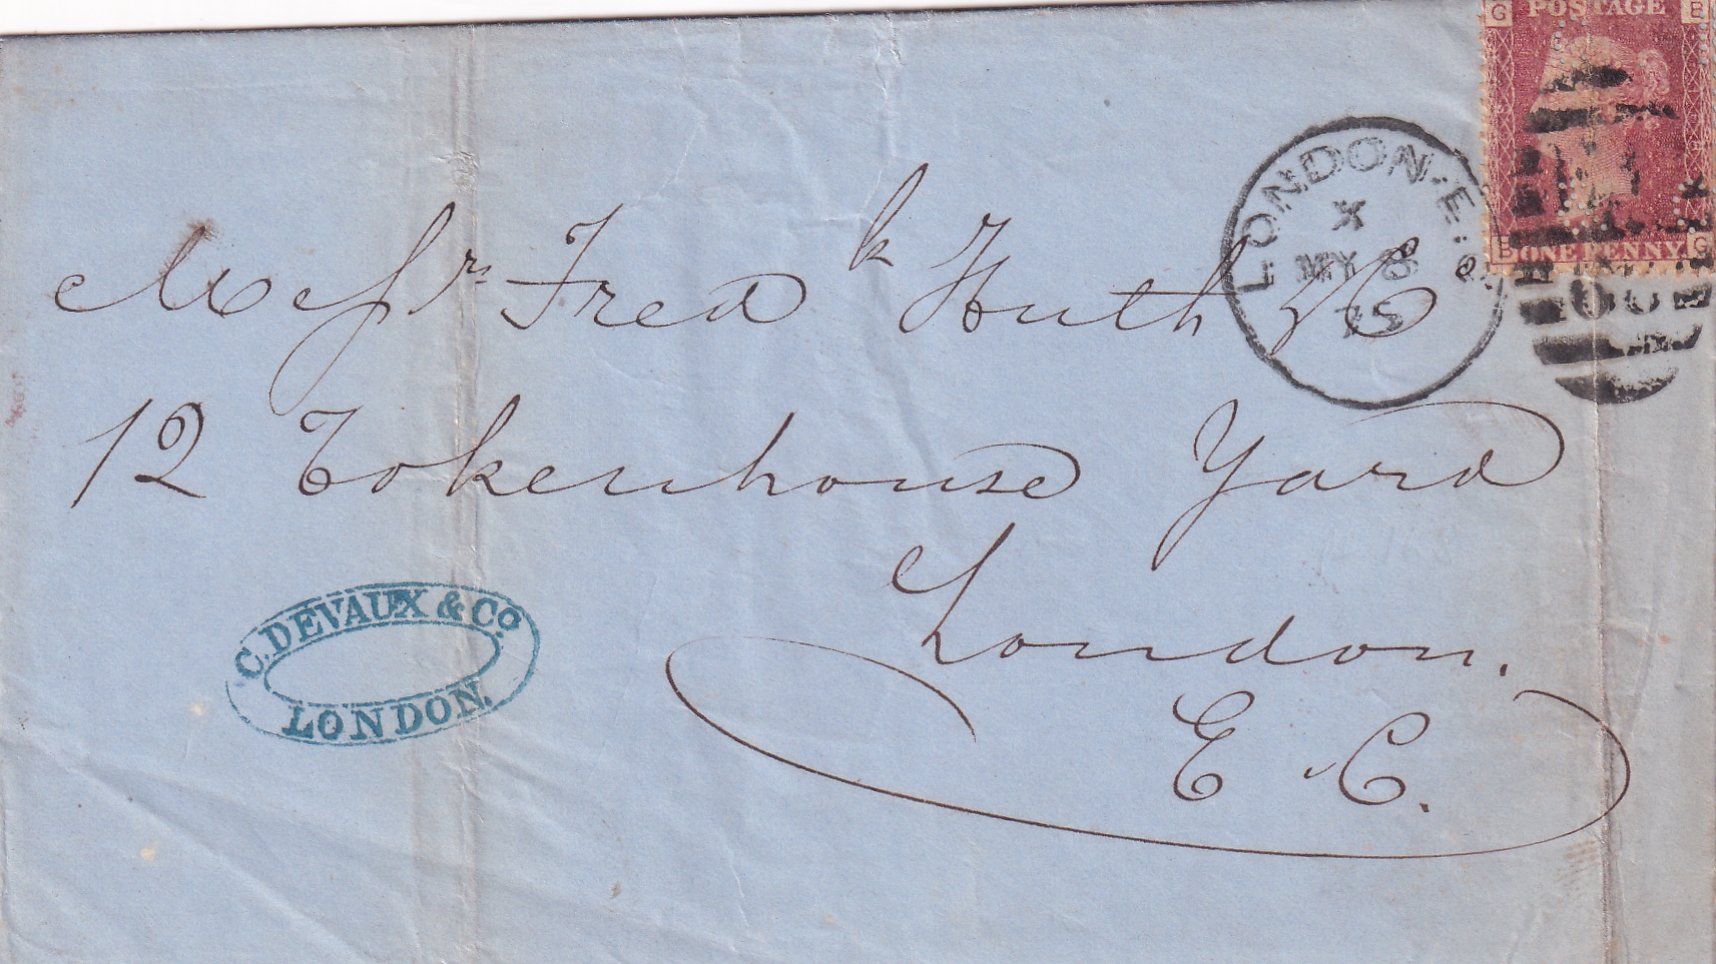 G POSTAGE B
B ONE PENNY G
LONDON·E·C
X
MY 8
75
Messrs Fredk Huth & Co
12 Tokenhouse Yard
London.
E. C.
C. DEVAUX & Co.
LONDON.